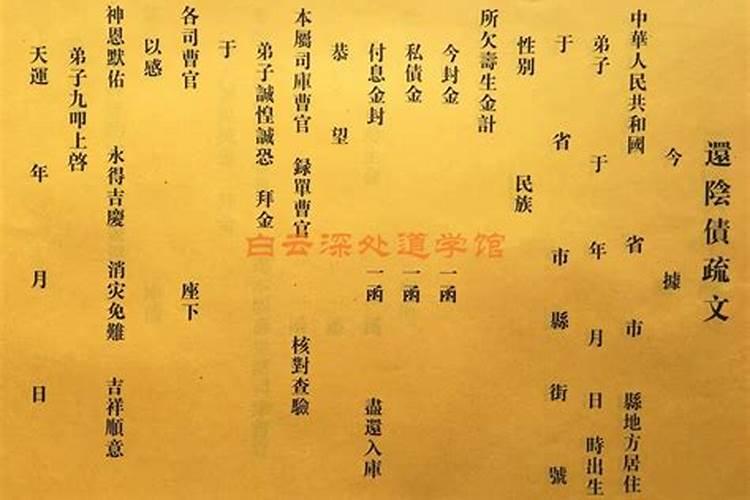 還陰債疏文
今 據
中華人民共和國 省 市 縣地方居住
弟子 于 年 月 日 時出生
于 省 市 縣 街 號
性別 民族
所欠壽生金計
今封金 一函
私債金 一函
付息金封 一函 盡還入庫
恭 望
本屬司庫曹官 録單曹官 核對查驗
弟子誠惶誠恐 拜金
于
各司曹官 座下
以感
神恩默佑 永得吉慶 消灾免難 吉祥順意
弟子九叩上啓
天運 年 月 日
白云深处道学馆